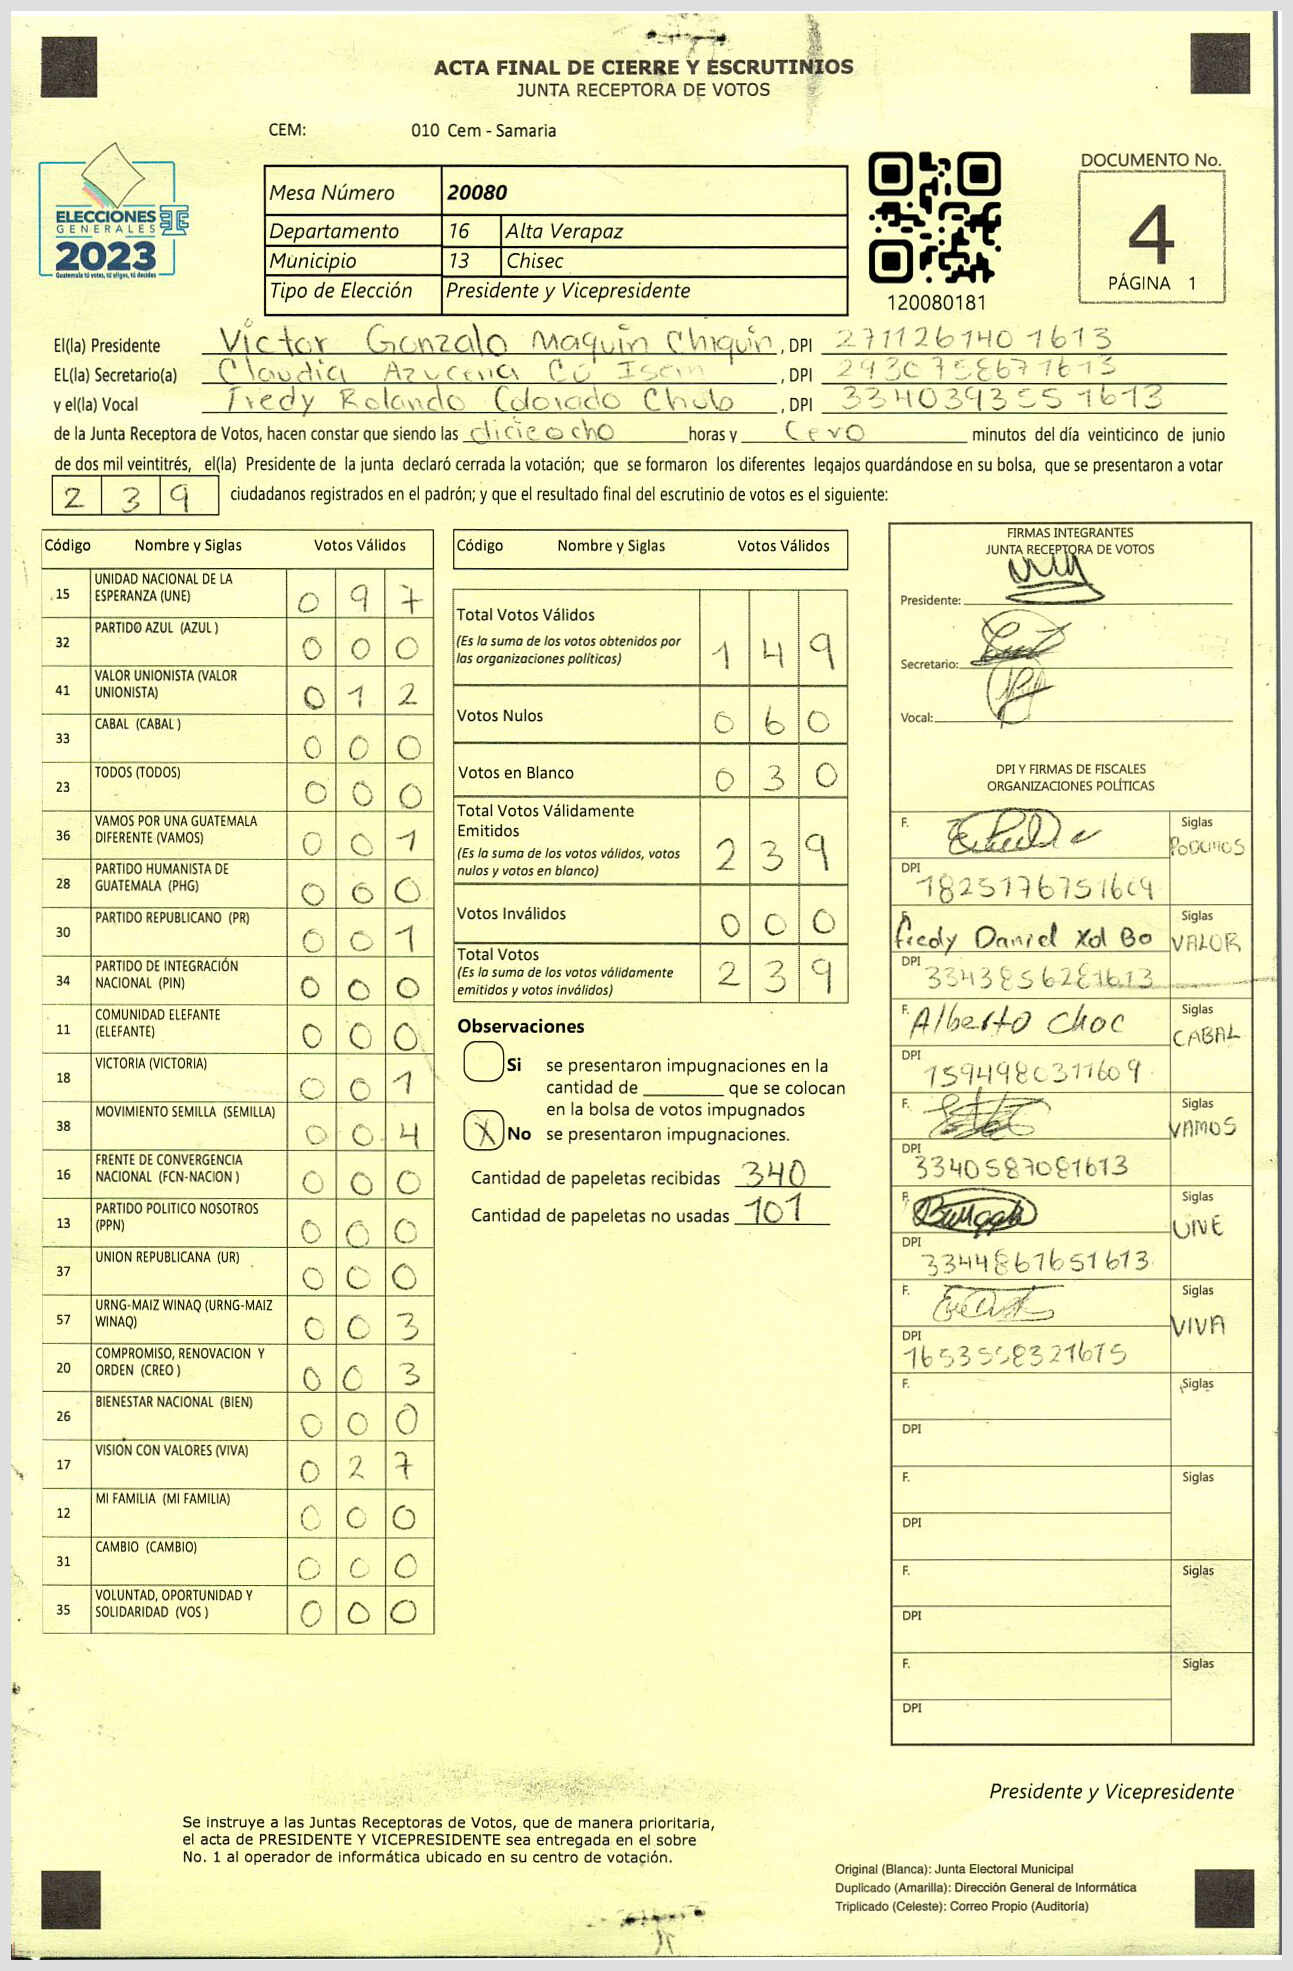 ACTA FINAL DE CIERRE Y ESCRUTINIOS
JUNTA RECEPTORA DE VOTOS
CEM: 010 Cem - Samaria
ELECCIONES
GENERALES
2023
Guatemala tú votas, tú eliges, tú decides
Mesa Número 20080
Departamento 16 Alta Verapaz
Municipio 13 Chisec
Tipo de Elección Presidente y Vicepresidente
120080181
DOCUMENTO No.
4
PÁGINA 1
El(la) Presidente Victor Gonzalo Maquin Chiquin, DPI 2711261401613
EL(la) Secretario(a) Claudia Azucena Cú, DPI 2930758671613
y el(la) Vocal Fredy Rolando Colorado Chub, DPI 3340393551613
de la Junta Receptora de Votos, hacen constar que siendo las diciocho horas y Cero minutos del día veinticinco de junio
de dos mil veintitrés, el(la) Presidente de la junta declaró cerrada la votación; que se formaron los diferentes legajos guardándose en su bolsa, que se presentaron a votar
2 3 9 ciudadanos registrados en el padrón; y que el resultado final del escrutinio de votos es el siguiente:
Código Nombre y Siglas Votos Válidos
15 UNIDAD NACIONAL DE LA ESPERANZA (UNE) 0 9 7
32 PARTIDO AZUL (AZUL ) 0 0 0
41 VALOR UNIONISTA (VALOR UNIONISTA) 0 1 2
33 CABAL (CABAL ) 0 0 0
23 TODOS (TODOS) 0 0 0
36 VAMOS POR UNA GUATEMALA DIFERENTE (VAMOS) 0 0 1
28 PARTIDO HUMANISTA DE GUATEMALA (PHG) 0 0 0
30 PARTIDO REPUBLICANO (PR) 0 0 1
34 PARTIDO DE INTEGRACIÓN NACIONAL (PIN) 0 0 0
11 COMUNIDAD ELEFANTE (ELEFANTE) 0 0 0
18 VICTORIA (VICTORIA) 0 0 1
38 MOVIMIENTO SEMILLA (SEMILLA) 0 0 4
16 FRENTE DE CONVERGENCIA NACIONAL (FCN-NACION ) 0 0 0
13 PARTIDO POLITICO NOSOTROS (PPN) 0 0 0
37 UNION REPUBLICANA (UR) 0 0 0
57 URNG-MAIZ WINAQ (URNG-MAIZ WINAQ) 0 0 3
20 COMPROMISO, RENOVACION Y ORDEN (CREO ) 0 0 3
26 BIENESTAR NACIONAL (BIEN) 0 0 0
17 VISION CON VALORES (VIVA) 0 2 7
12 MI FAMILIA (MI FAMILIA) 0 0 0
31 CAMBIO (CAMBIO) 0 0 0
35 VOLUNTAD, OPORTUNIDAD Y SOLIDARIDAD (VOS ) 0 0 0
Código Nombre y Siglas Votos Válidos
Total Votos Válidos
(Es la suma de los votos obtenidos por
las organizaciones políticas) 1 4 9
Votos Nulos 0 6 0
Votos en Blanco 0 3 0
Total Votos Válidamente
Emitidos
(Es la suma de los votos válidos, votos
nulos y votos en blanco) 2 3 9
Votos Inválidos 0 0 0
Total Votos
(Es la suma de los votos válidamente
emitidos y votos inválidos) 2 3 9
Observaciones
Si se presentaron impugnaciones en la
cantidad de ________ que se colocan
en la bolsa de votos impugnados
X No se presentaron impugnaciones.
Cantidad de papeletas recibidas 340
Cantidad de papeletas no usadas 101
FIRMAS INTEGRANTES
JUNTA RECEPTORA DE VOTOS
Presidente:
Secretario:
Vocal:
DPI Y FIRMAS DE FISCALES
ORGANIZACIONES POLÍTICAS
F. Siglas PODEMOS
DPI 1825176751609
F. Fredy Daniel Xol Bo Siglas VALOR
DPI 3343856281613
F. Alberto Choc Siglas CABAL
DPI 1594980311609
F. Siglas VAMOS
DPI 3340587081613
F. Siglas UNE
DPI 3344861651613
F. Siglas VIVA
DPI 1653558321615
F. Siglas
DPI
F. Siglas
DPI
F. Siglas
DPI
F. Siglas
DPI
Presidente y Vicepresidente
Se instruye a las Juntas Receptoras de Votos, que de manera prioritaria,
el acta de PRESIDENTE Y VICEPRESIDENTE sea entregada en el sobre
No. 1 al operador de informática ubicado en su centro de votación.
Original (Blanca): Junta Electoral Municipal
Duplicado (Amarilla): Dirección General de Informática
Triplicado (Celeste): Correo Propio (Auditoría)